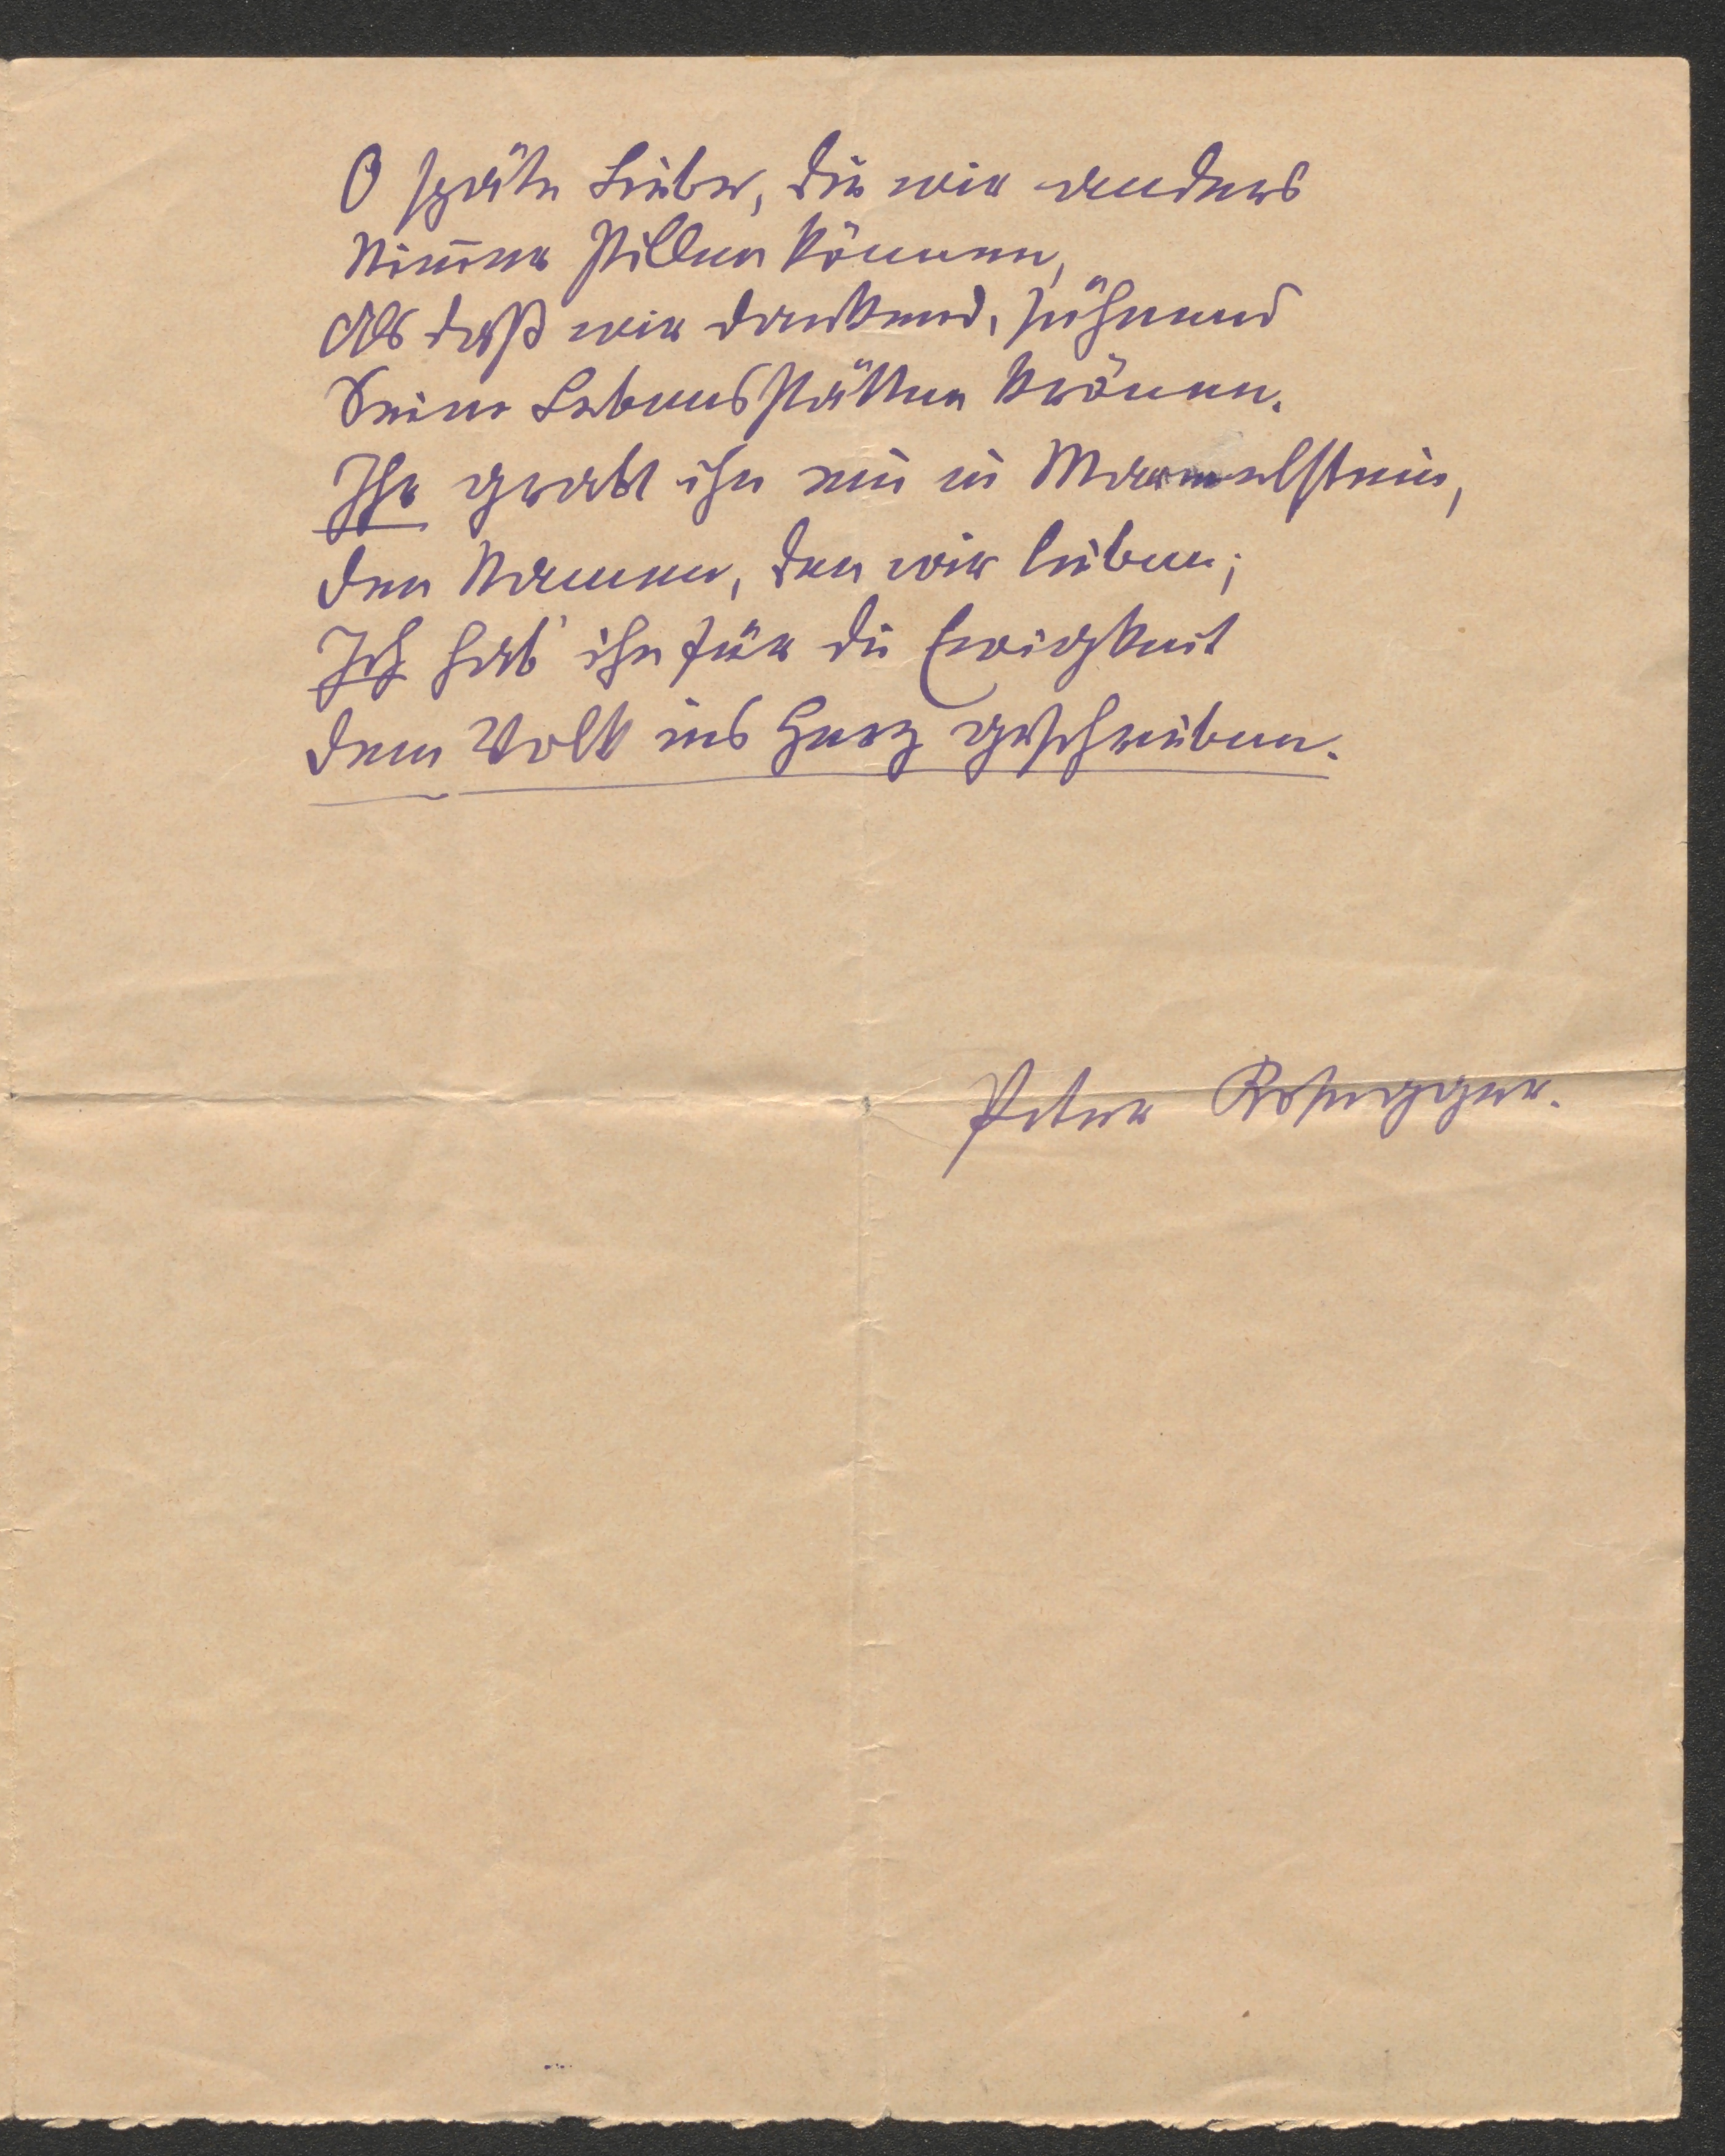 O späte Liebe, die wir anders
Nim̅er stillen können,
Als daß wir dankend, sühnend
Seine Lebensstätten krönen.
Ihr grabt ihn ein in Marmelstein,
Den Namen, den wir lieben;
Ich hab' ihn für die Ewigkeit
Dem Volk ins Herz geschrieben.
Peter Rosegger.